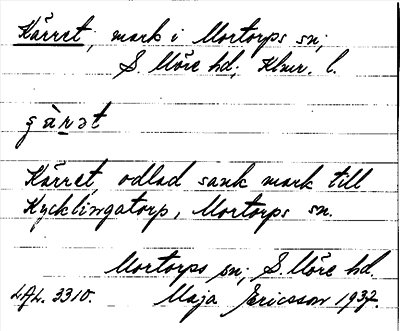 Kärret, mark i Mortorps sn;
S. Möre hd; Klmr. l.
çàrət
Kärret, odlad sank mark till
Kycklingatorp, Mortorps sn.
Mortorps sn; S. Möre hd.
LAL. 3310. Maja Ericsson 1937.